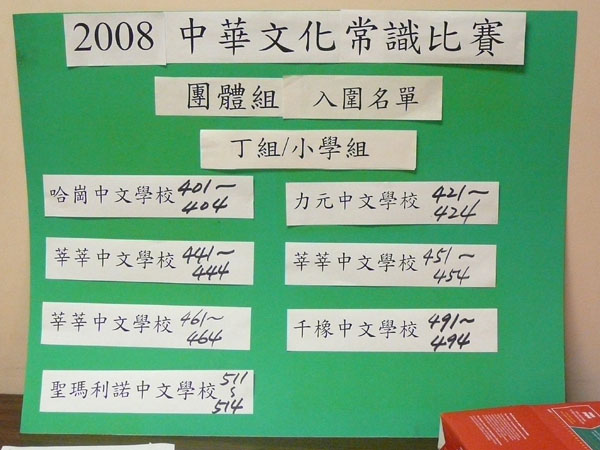 2008 中華文化常識比賽
團體組 入圍名單
丁組/小學組
哈崗中文學校 401~404
力元中文學校 421~424
莘莘中文學校 441~444
莘莘中文學校 451~454
莘莘中文學校 461~464
千橡中文學校 491~494
聖瑪利諾中文學校 511~514